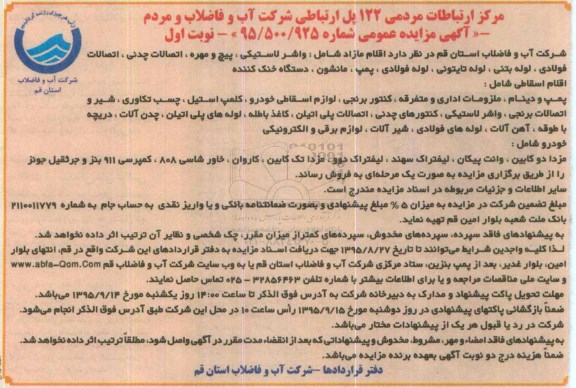 مرکز ارتباطات مردمی ۱۲۲ پل ارتباطی شرکت آب و فاضلاب و مردم
«آگهی مزایده عمومی شماره ۹۵/۵۰۰/۹۲۵» – نوبت اول
شرکت آب و فاضلاب استان قم
شرکت آب و فاضلاب استان قم در نظر دارد اقلام مازاد شامل : واشر لاستیکی ، پیچ و مهره ، اتصالات چدنی ، اتصالات
فولادی ، لوله بتنی ، لوله تایتونی ، لوله فولادی ، پمپ ، مانشون ، دستگاه خنک کننده
اقلام اسقاطی شامل :
پمپ و دینام ، ملزومات اداری و متفرقه ، کنتور برنجی ، لوازم اسقاطی خودرو ، کلمپ استیل ، چسب تکاوری ، شیر و
اتصالات برنجی ، واشر لاستیکی ، کنتورهای چدنی ، اتصالات پلی اتیلن ، کاغذ باطله ، لوله های پلی اتیلن ، چدن آلات ، دریچه
با طوقه ، آهن آلات ، لوله های فولادی ، شیر آلات ، لوازم برقی و الکترونیکی
خودرو شامل :
مزدا دو کابین ، وانت پیکان ، لیفتراک سهند ، لیفتراک دوو ، مزدا تک کابین ، کاروان ، خاور شاسی ۸۰۸ ، کمپرسی ۹۱۱ بنز و جرثقیل جونز
را از طریق برگزاری مزایده به صورت یک مرحله‌ای به فروش رساند.
سایر اطلاعات و جزئیات مربوطه در اسناد مزایده مندرج است.
مبلغ تضمین شرکت در مزایده به میزان ۵ % مبلغ پیشنهادی و بصورت ضمانتنامه بانکی و یا واریز نقدی به حساب جام به شماره ۲۱۱۰۰۱۱۷۷۹
بانک ملت شعبه بلوار امین قم تهیه نماید.
به پیشنهادهای فاقد سپرده، سپرده‌های مخدوش، سپرده‌های کمتر از میزان مقرر، چک شخصی و نظایر آن ترتیب اثر داده نخواهد شد.
لذا کلیه واجدین شرایط می‌توانند تا تاریخ ۱۳۹۵/۸/۲۷ جهت دریافت اسناد مزایده به دفتر قراردادهای این شرکت واقع در قم، انتهای بلوار
امین، بلوار غدیر، بعد از پمپ بنزین، ستاد مرکزی شرکت آب و فاضلاب استان قم یا به وب سایت شرکت آب و فاضلاب قم www.abfa-Qom.Com
و سایت ملی مناقصات مراجعه و یا برای اطلاعات بیشتر با شماره تلفن ۳۲۸۵۶۴۶۳ – ۰۲۵ تماس حاصل نمایند.
مهلت تحویل پاکت پیشنهاد و مدارک به دبیرخانه شرکت به آدرس فوق الذکر تا ساعت ۱۴:۰۰ روز یکشنبه مورخ ۱۳۹۵/۹/۱۴ می‌باشد.
ضمناً بازگشائی پاکتهای پیشنهادی در روز دوشنبه مورخ ۱۳۹۵/۹/۱۵ رأس ساعت ۱۰ در محل این شرکت طبق آدرس فوق الذکر انجام می‌شود.
شرکت در رد یا قبول هر یک از پیشنهادات مختار می‌باشد.
به پیشنهادهای فاقد امضاء و مهر، مشروط، مخدوش و پیشنهاداتی که بعد از انقضاء مدت مقرر در آگهی واصل شود، مطلقاً ترتیب اثر داده نخواهد شد.
ضمناً هزینه درج دو نوبت آگهی بعهده برنده مزایده می‌باشد.
دفتر قراردادها – شرکت آب و فاضلاب استان قم